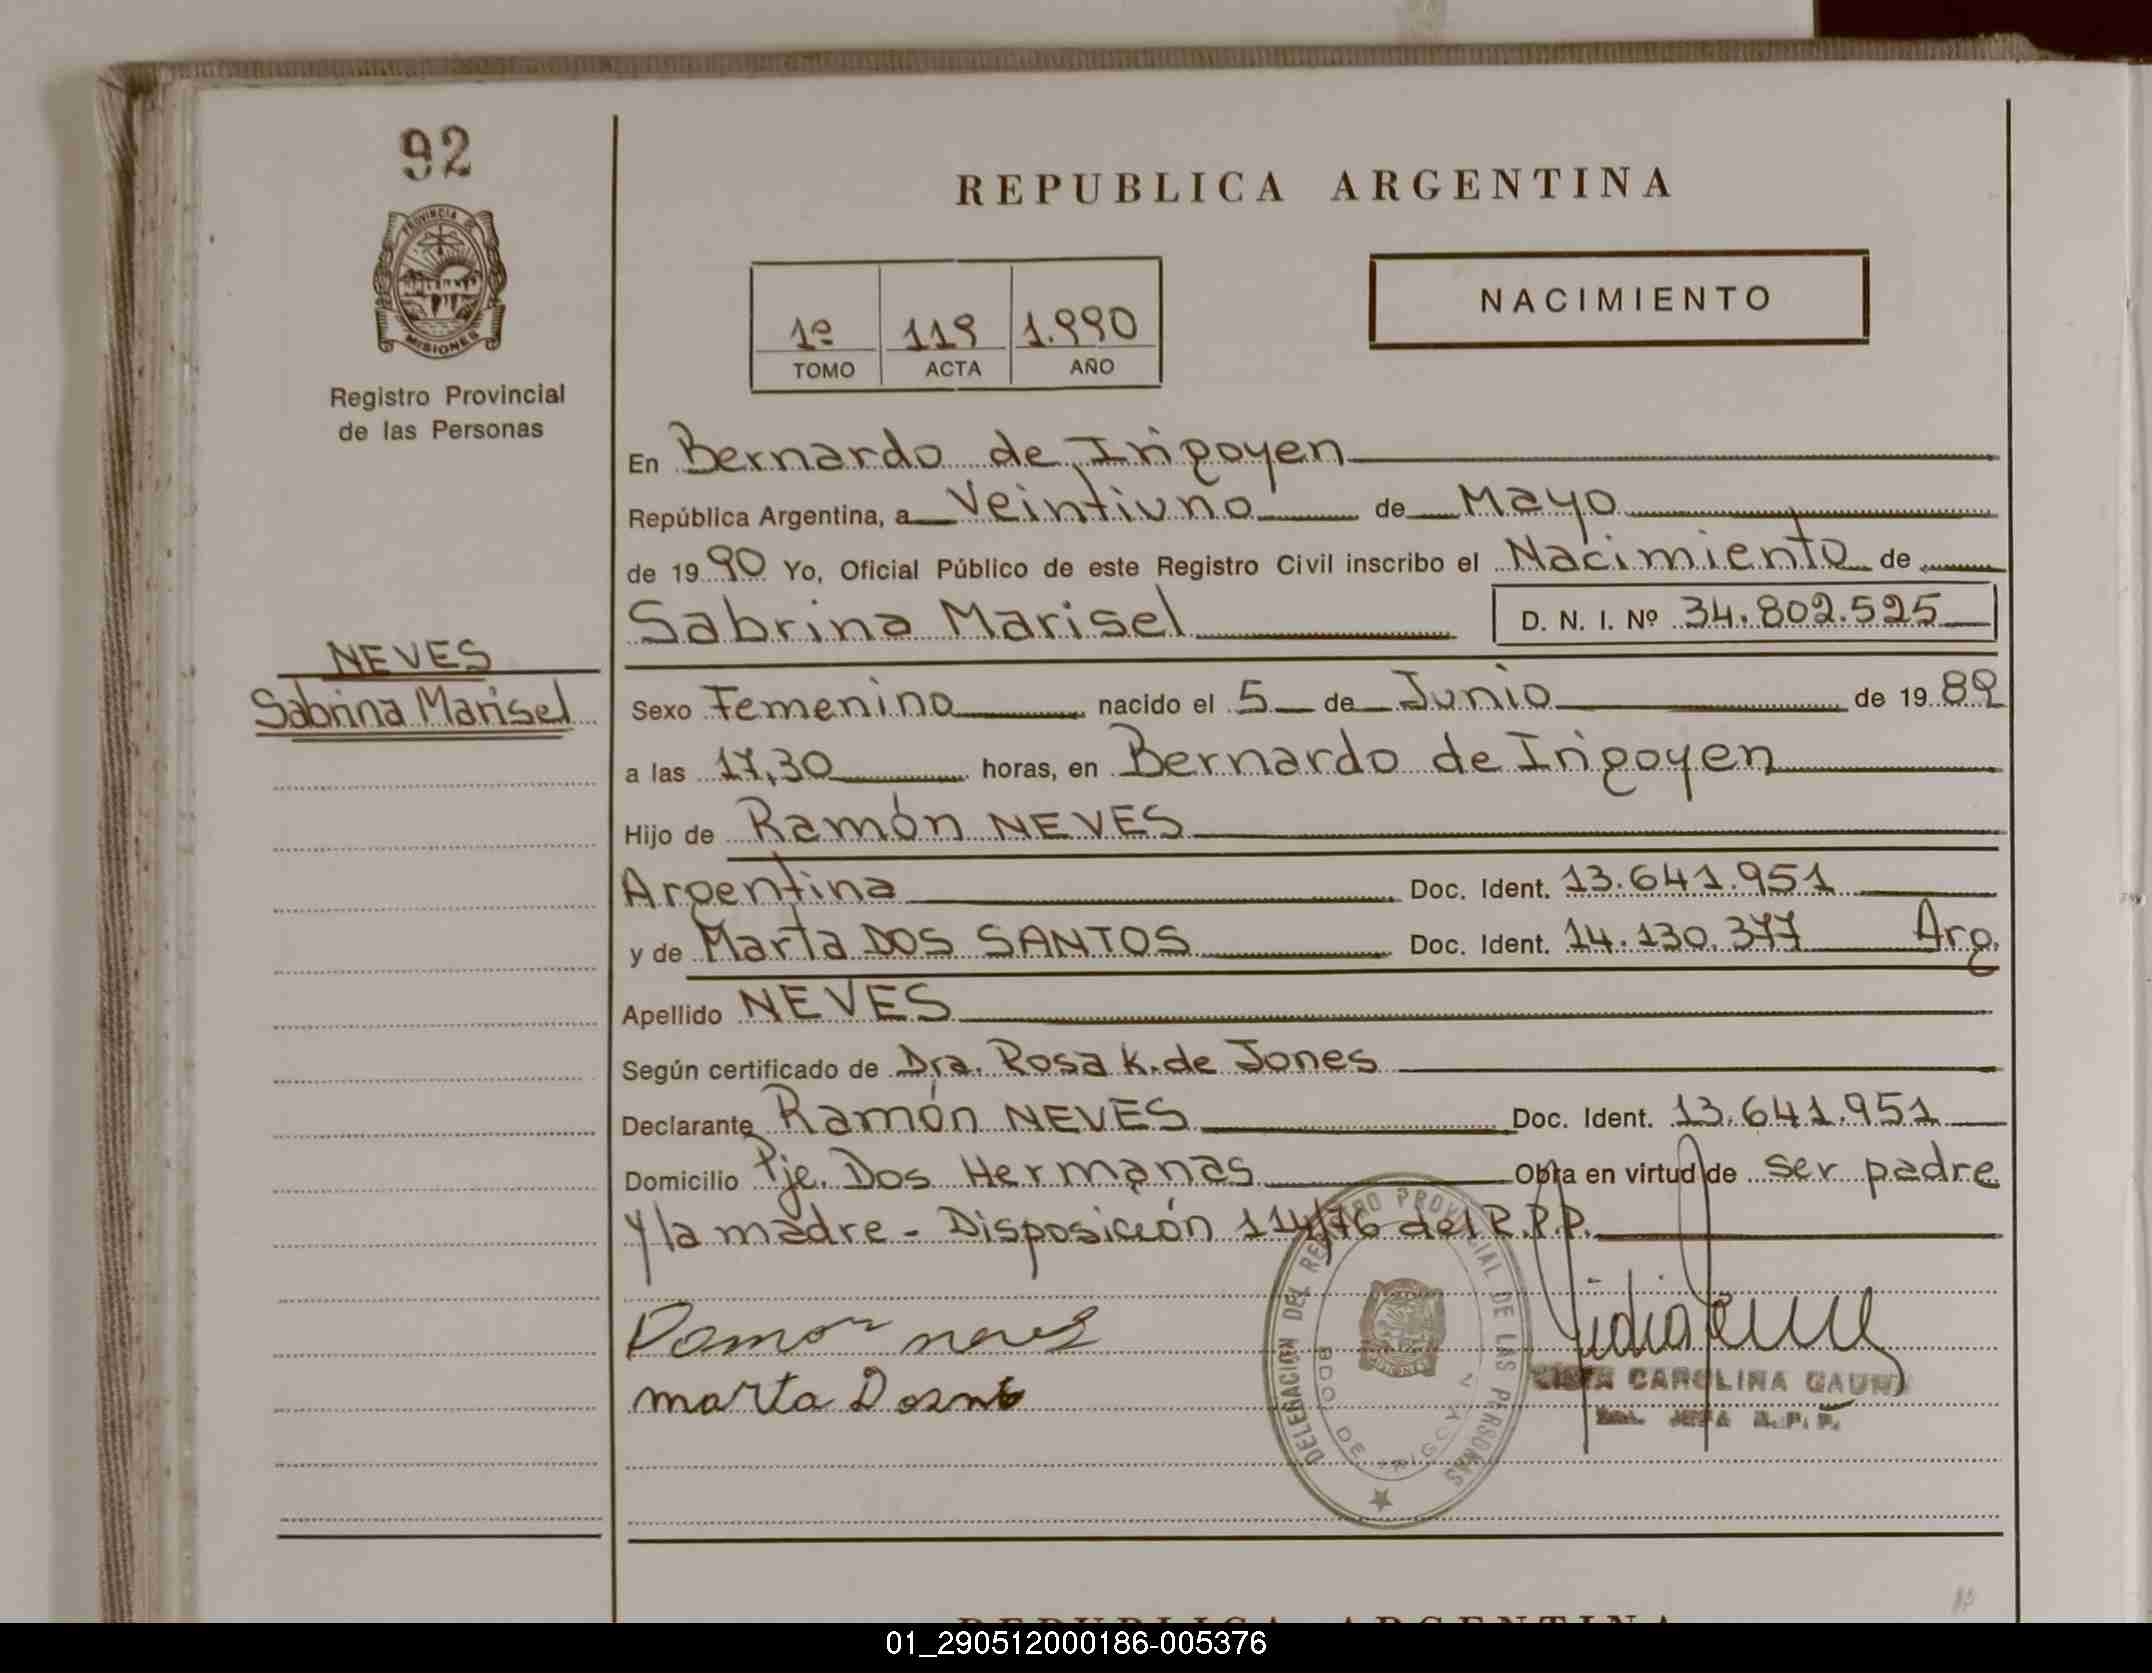 92
REPUBLICA ARGENTINA
PROVINCIA DE
MISIONES
Registro Provincial
de las Personas
1º 119 1.990
TOMO ACTA AÑO
NACIMIENTO
En Bernardo de Irigoyen
República Argentina, a Veintiuno de Mayo
de 1990 Yo, Oficial Público de este Registro Civil inscribo el Nacimiento de
Sabrina Marisel D. N. I. Nº 34.802.525
NEVES
Sabrina Marisel
Sexo Femenino nacido el 5 de Junio de 1989
a las 17,30 horas, en Bernardo de Irigoyen
Hijo de Ramón NEVES
Argentina Doc. Ident. 13.641.951
y de Marta DOS SANTOS Doc. Ident. 14.130.377 Arg.
Apellido NEVES
Según certificado de Dra. Rosa K. de Jones
Declarante Ramón NEVES Doc. Ident. 13.641.951
Domicilio Pje. Dos Hermanas Obra en virtud de ser padre
y la madre - Disposición 114/76 del R.P.P.
DELEGACION DEL REGISTRO PROVINCIAL DE LAS PERSONAS
BDO. DE IRIGOYEN
Ramon neves
marta
CAROLINA
JEFA R.P.P.
REPUBLICA ARGENTINA
01_290512000186-005376